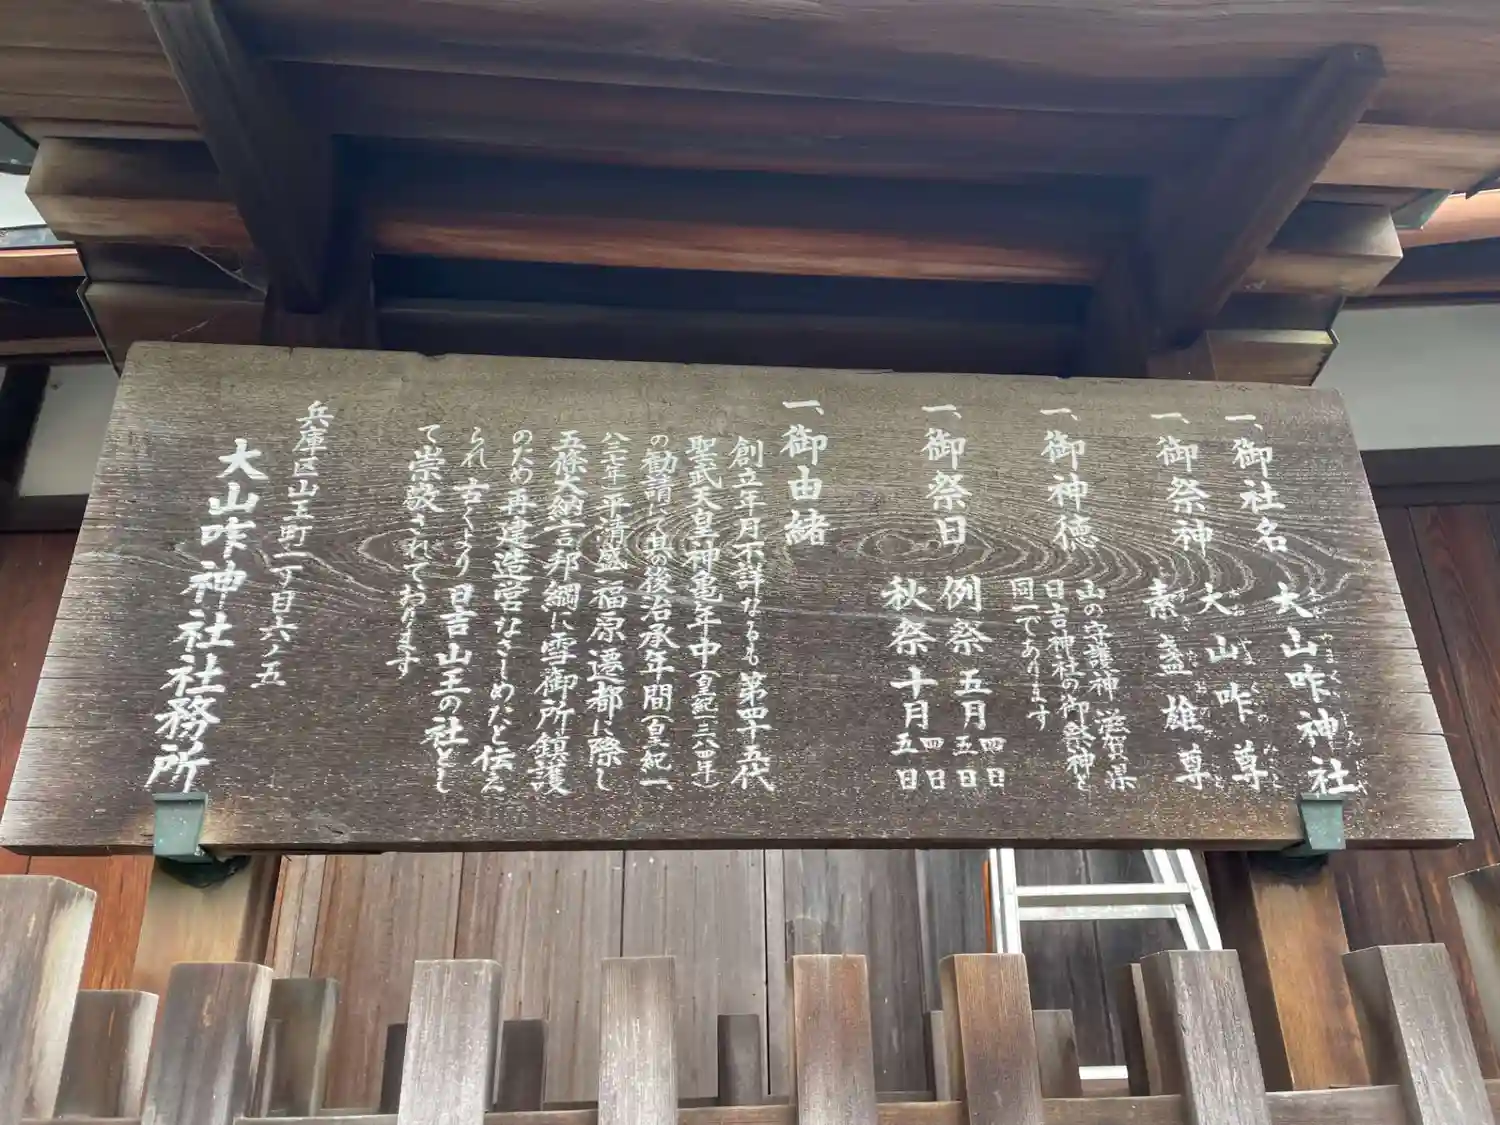 一、御社名 大山咋神社
おおやまくいじんじゃ
一、御祭神 大山咋尊
おおやまくいのみこと
素盞雄尊
すさのおのみこと
一、御神徳 山の守護神 滋賀県
日吉神社の御祭神と
同一であります
一、御祭日 例祭 五月 四日 五日
秋祭 十月 四日 五日
一、御由緒
創立年月不詳なるも 第四十五代
聖武天皇神亀年中(皇紀一三八四年)
の勧請にて其の後治承年間(皇紀一、
八四〇年)平清盛 福原遷都に際し
五條大納言邦綱に雪御所鎮護
のため再建造営なさしめたと伝え
られ 古くより 日吉山王の社とし
て崇敬されております
兵庫区山王町二丁目六ノ五
大山咋神社社務所